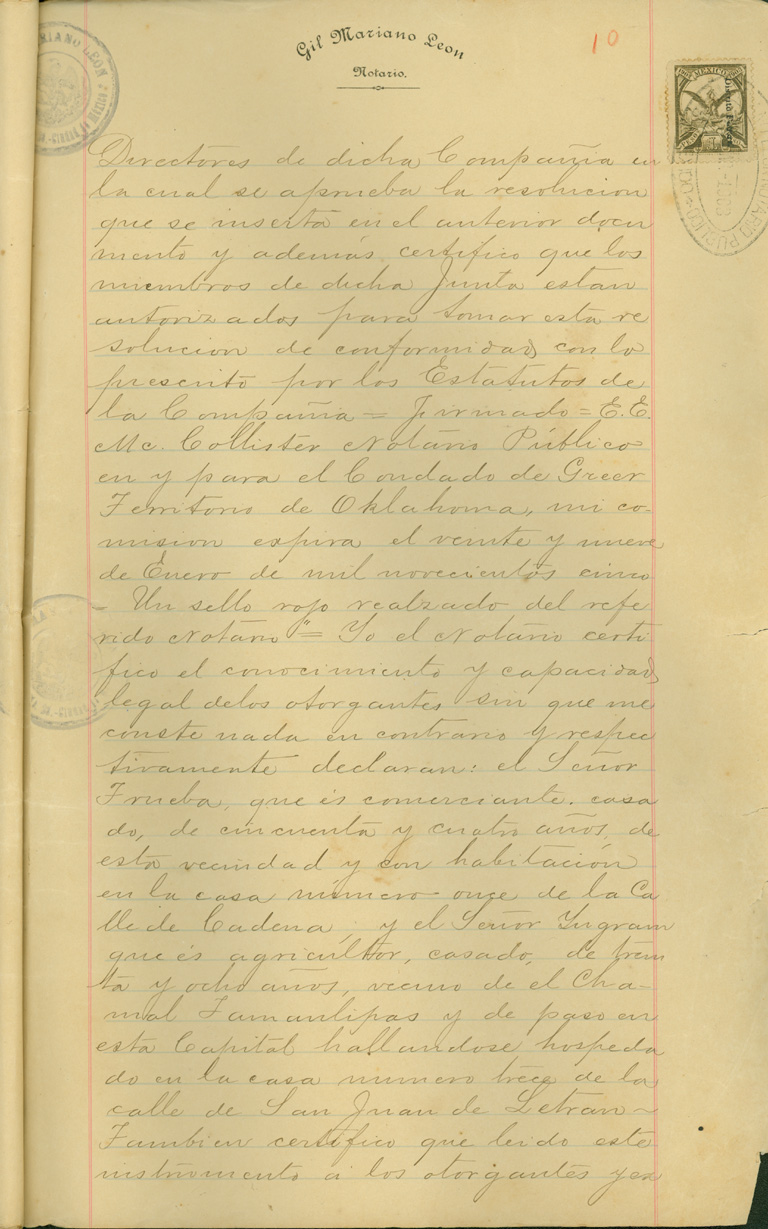 Gil Mariano Leon
Notario.
10
Directores de dicha Compañia en
la cual se aprueba la resolucion
que se inserta en el anterior docu
mento y además certifico que los
miembros de dicha Junta estan
autorizados para tomar esta re
solucion de conformidad con lo
prescrito por los Estatutos de
la Compañia = Firmado = E. E.
Mc. Collister Notario Público
en y para el Condado de Greer
Territorio de Oklahoma, mi co-
mision expira el veinte y nueve
de Enero de mil novecientos cinco
- Un sello rojo realzado del refe
rido Notario" = Yo el Notario certi
fico el conocimiento y capacidad
legal delos otorgantes sin que me
conste nada en contrario y respec
tivamente declaran: el Señor
Trueba, que és comerciante, casa
do, de cincuenta y cuatro años, de
esta vecindad y con habitación
en la casa número once de la Ca
lle de Cadena, y el Señor Yngram
que és agricultor, casado, de trein
ta y ocho años, vecino de el Cha-
mal Tamaulipas y de paso en
esta Capital hallandose hospeda
do en la casa numero trece de la
calle de San Juan de Letran ~
Tambien certifico que leido este
instrumento á los otorgantes y ex
MEXICO